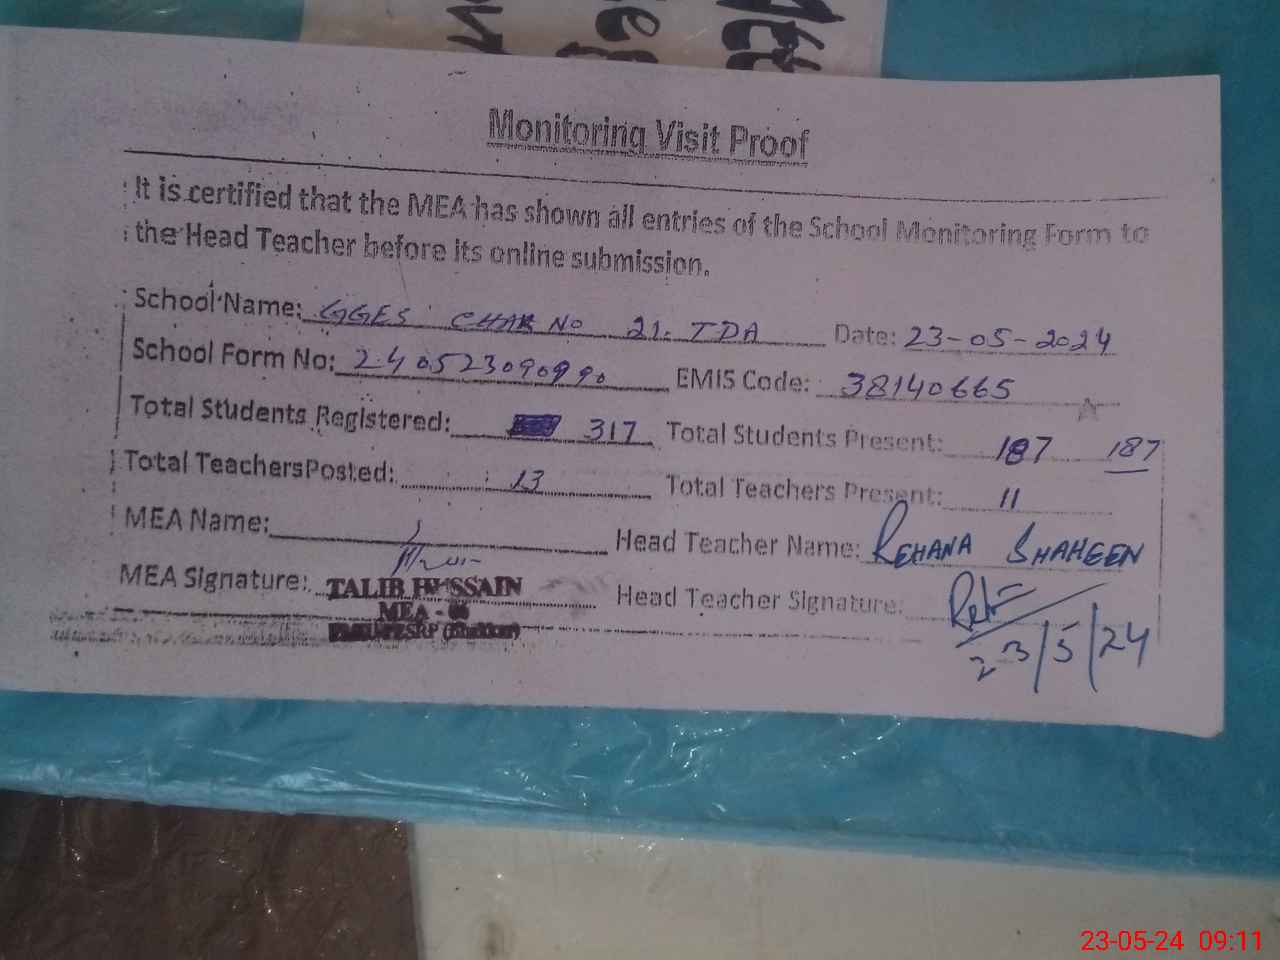 Monitoring Visit Proof
It is certified that the MEA has shown all entries of the School Monitoring Form to
the Head Teacher before its online submission.
School Name: GGES CHAK No 21. TDA Date: 23-05-2024
School Form No: 240523090990 EMIS Code: 38140665
Total Students Registered: 317 Total Students Present: 187 187
Total Teachers Posted: 13 Total Teachers Present: 11
MEA Name: Head Teacher Name: REHANA SHAHEEN
MEA Signature: TALIB HUSSAIN Head Teacher Signature:
MEA -
23/5/24
23-05-24 09:11